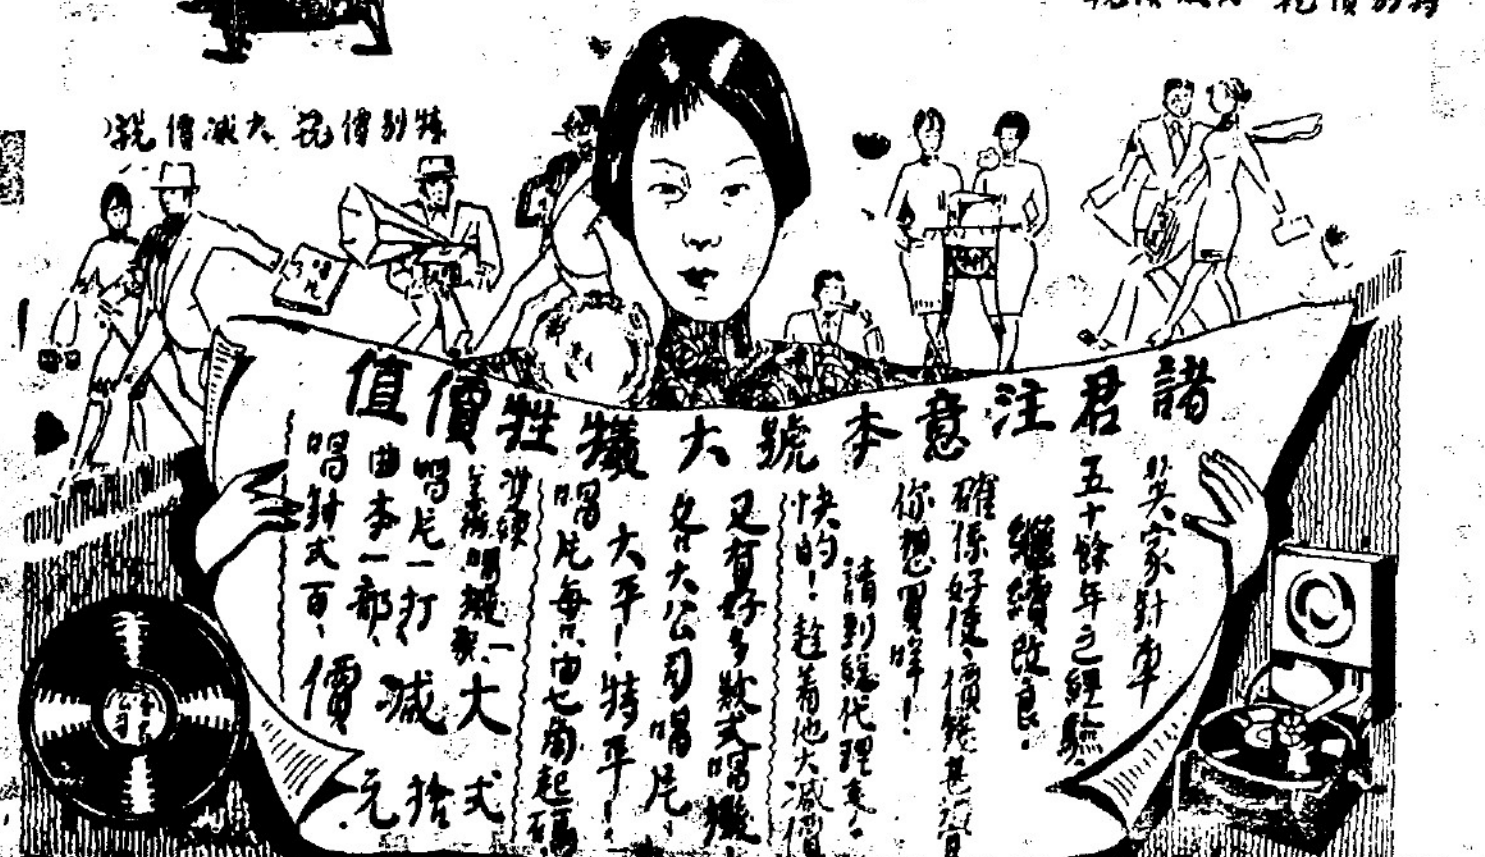 特別價 大減價
唱片
諸君注意本號大犧牲價值
吳家針車
五十餘年之經驗
繼續改良.
確係好使,價錢甚
你想買咩!
請到總代理
快的!趁着他大減價
又有好多款式唱機
各大公司唱片.
大平!特平!
唱片每只由七角起碼
唱機一架、
唱片一打、
曲本一部、
唱針式百、
大減價
式拾元